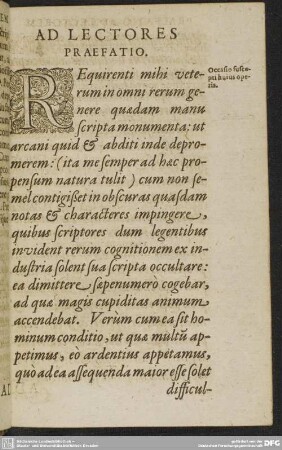 AD LECTORES
PRAEFATIO.
REquirenti mihi vete-
rum in omni rerum ge-
nere quædam manu
scripta monumenta: ut
arcani quid & abditi inde depro-
merem: (ita me semper ad hæc pro-
pensum natura tulit) cum non se-
mel contigißet in obscuras quasdam
notas & characteres impingere,
quibus scriptores dum legentibus
invident rerum cognitionem ex in-
dustria solent sua scripta occultare:
ea dimittere sæpenumerò cogebar,
ad quæ magis cupiditas animum
accendebat. Verùm cum ea sit ho-
minum conditio, ut quæ multũ ap-
petimus, eò ardentius appetamus,
quo ad ea assequenda maior esse solet
difficul-
Occasio susce-
pti huius ope-
ris.